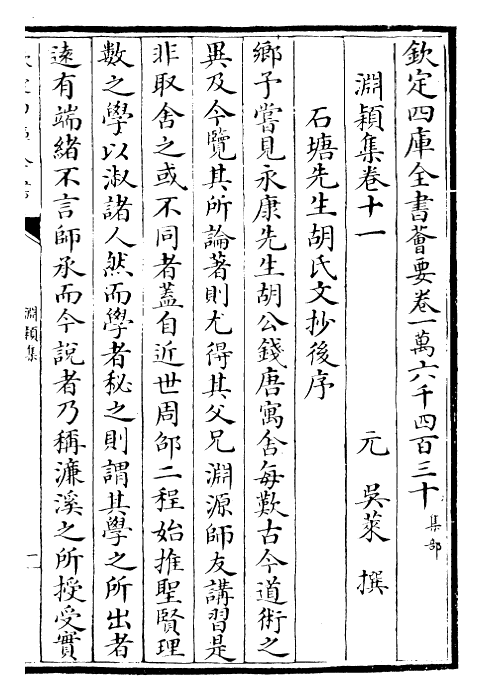 欽定四庫全書薈要卷一萬六千四百三十集部
淵頴集卷十一
元吳萊撰
石塘先生胡氏文抄後序
鄉子嘗見永康先生胡公錢唐寓舍每歎古今道術之
異及今覽其所論著則尤得其父兄淵源師友講習是
非取舍之或不同者蓋自近世周邵二程始推聖賢理
數之學以淑諸人然而學者秘之則謂其學之所出者
逺有端緒不言師承而今說者乃稱濂溪之所授受實
淵頴集